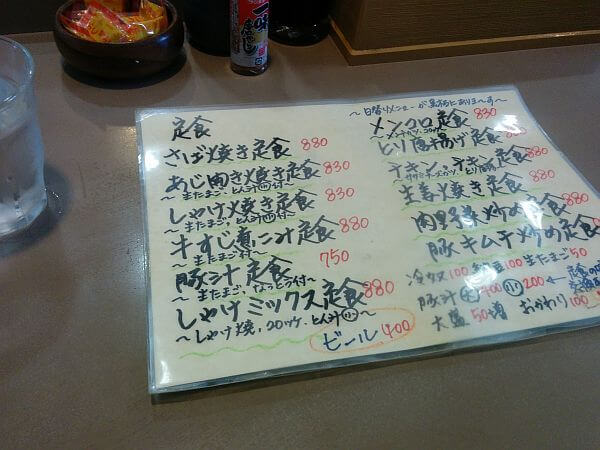 一味
定食
さば焼き定食 880
あじ開き焼き定食 830
～生たまご、とん汁小付～
しゃけ焼き定食 830
～生たまご、とん汁小付～
牛すじ煮こみ定食 880
～生たまご付～
豚汁定食 750
～生たまご、なっとう付～
しゃけミックス定食 880
～しゃけ焼、コロッケ、とん汁小～
ビール 400
～日替りメニューが黒板にありま～す～
メンコロ定食 830
～メンチカツ、コロッケ～
とり唐揚げ定食 880
チキン、チキン定食
生姜焼き定食 880
肉野菜炒め定食 880
豚キムチ炒め定食 880
冷奴 100 生たまご 50
豚汁 大 400 小 200
大盛 50増 おかわり 100